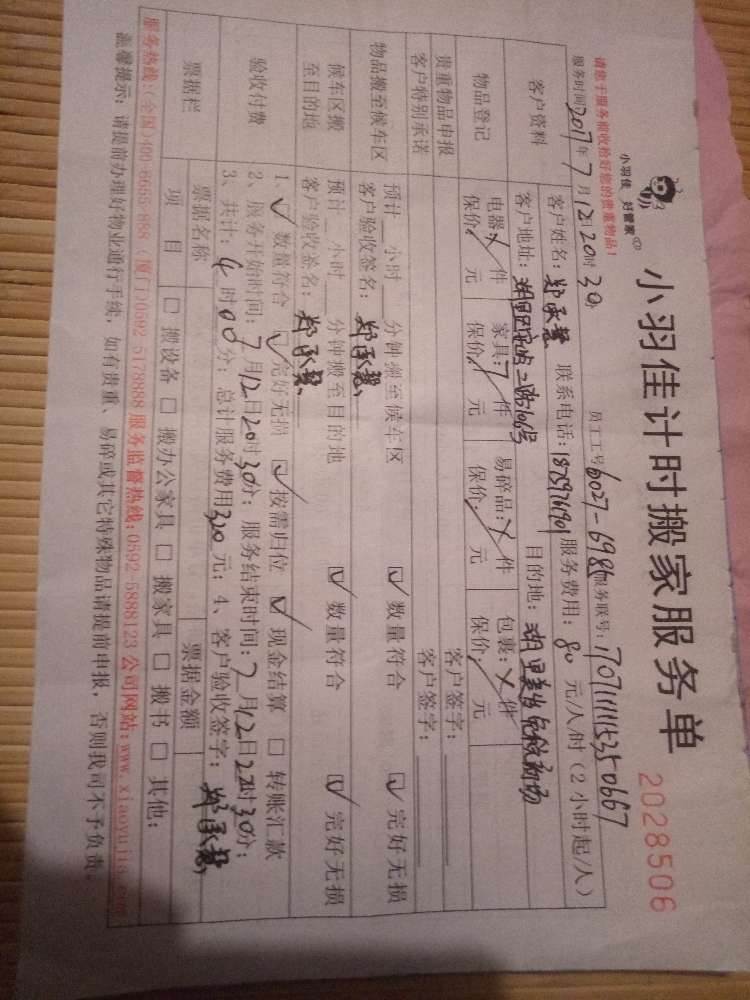 小羽佳 好管家
小羽佳计时搬家服务单
2028506
请您于服务前收检好您的贵重物品!
服务时间:2017年7月12日20时30分 员工工号:6027-698 服务联号:1707111115350667
客户资料
客户姓名: 联系电话:18759761901 服务费用:80元/人/时(2小时起/人)
客户地址: 目的地:
物品登记
电器:件 家具:件 易碎品:件 包裹:件
保价:元 保价:元 保价:元 保价:元
贵重物品申报 客户签字:
客户特别承诺 客户签字:
物品搬至候车区
预计 小时 分钟搬至候车区 ☑数量符合 ☑完好无损
客户验收签名:
候车区搬至目的地
预计 小时 分钟搬至目的地 ☑数量符合 ☑完好无损
客户验收签名:
验收付费
1、☑数量符合 ☑完好无损 ☑按需归位 ☑现金结算 □转账汇款
2、服务开始时间:7月12日20时30分;服务结束时间:7月12日22时30分;
3、共计:4时00分;总计服务费用320元;4、客户验收签字:
票据栏
票据名称 票据金额
项目 □搬设备 □搬办公家具 □搬家具 □搬书 □其他:
服务热线:(全国)400-6685-888 (厦门)0592-5178888 服务监督热线:0592-5888123 公司网站:www.xiaoyujia.com
温馨提示:请提前办理好物业通行手续,如有贵重、易碎或其它特殊物品请提前申报,否则我司不予负责。